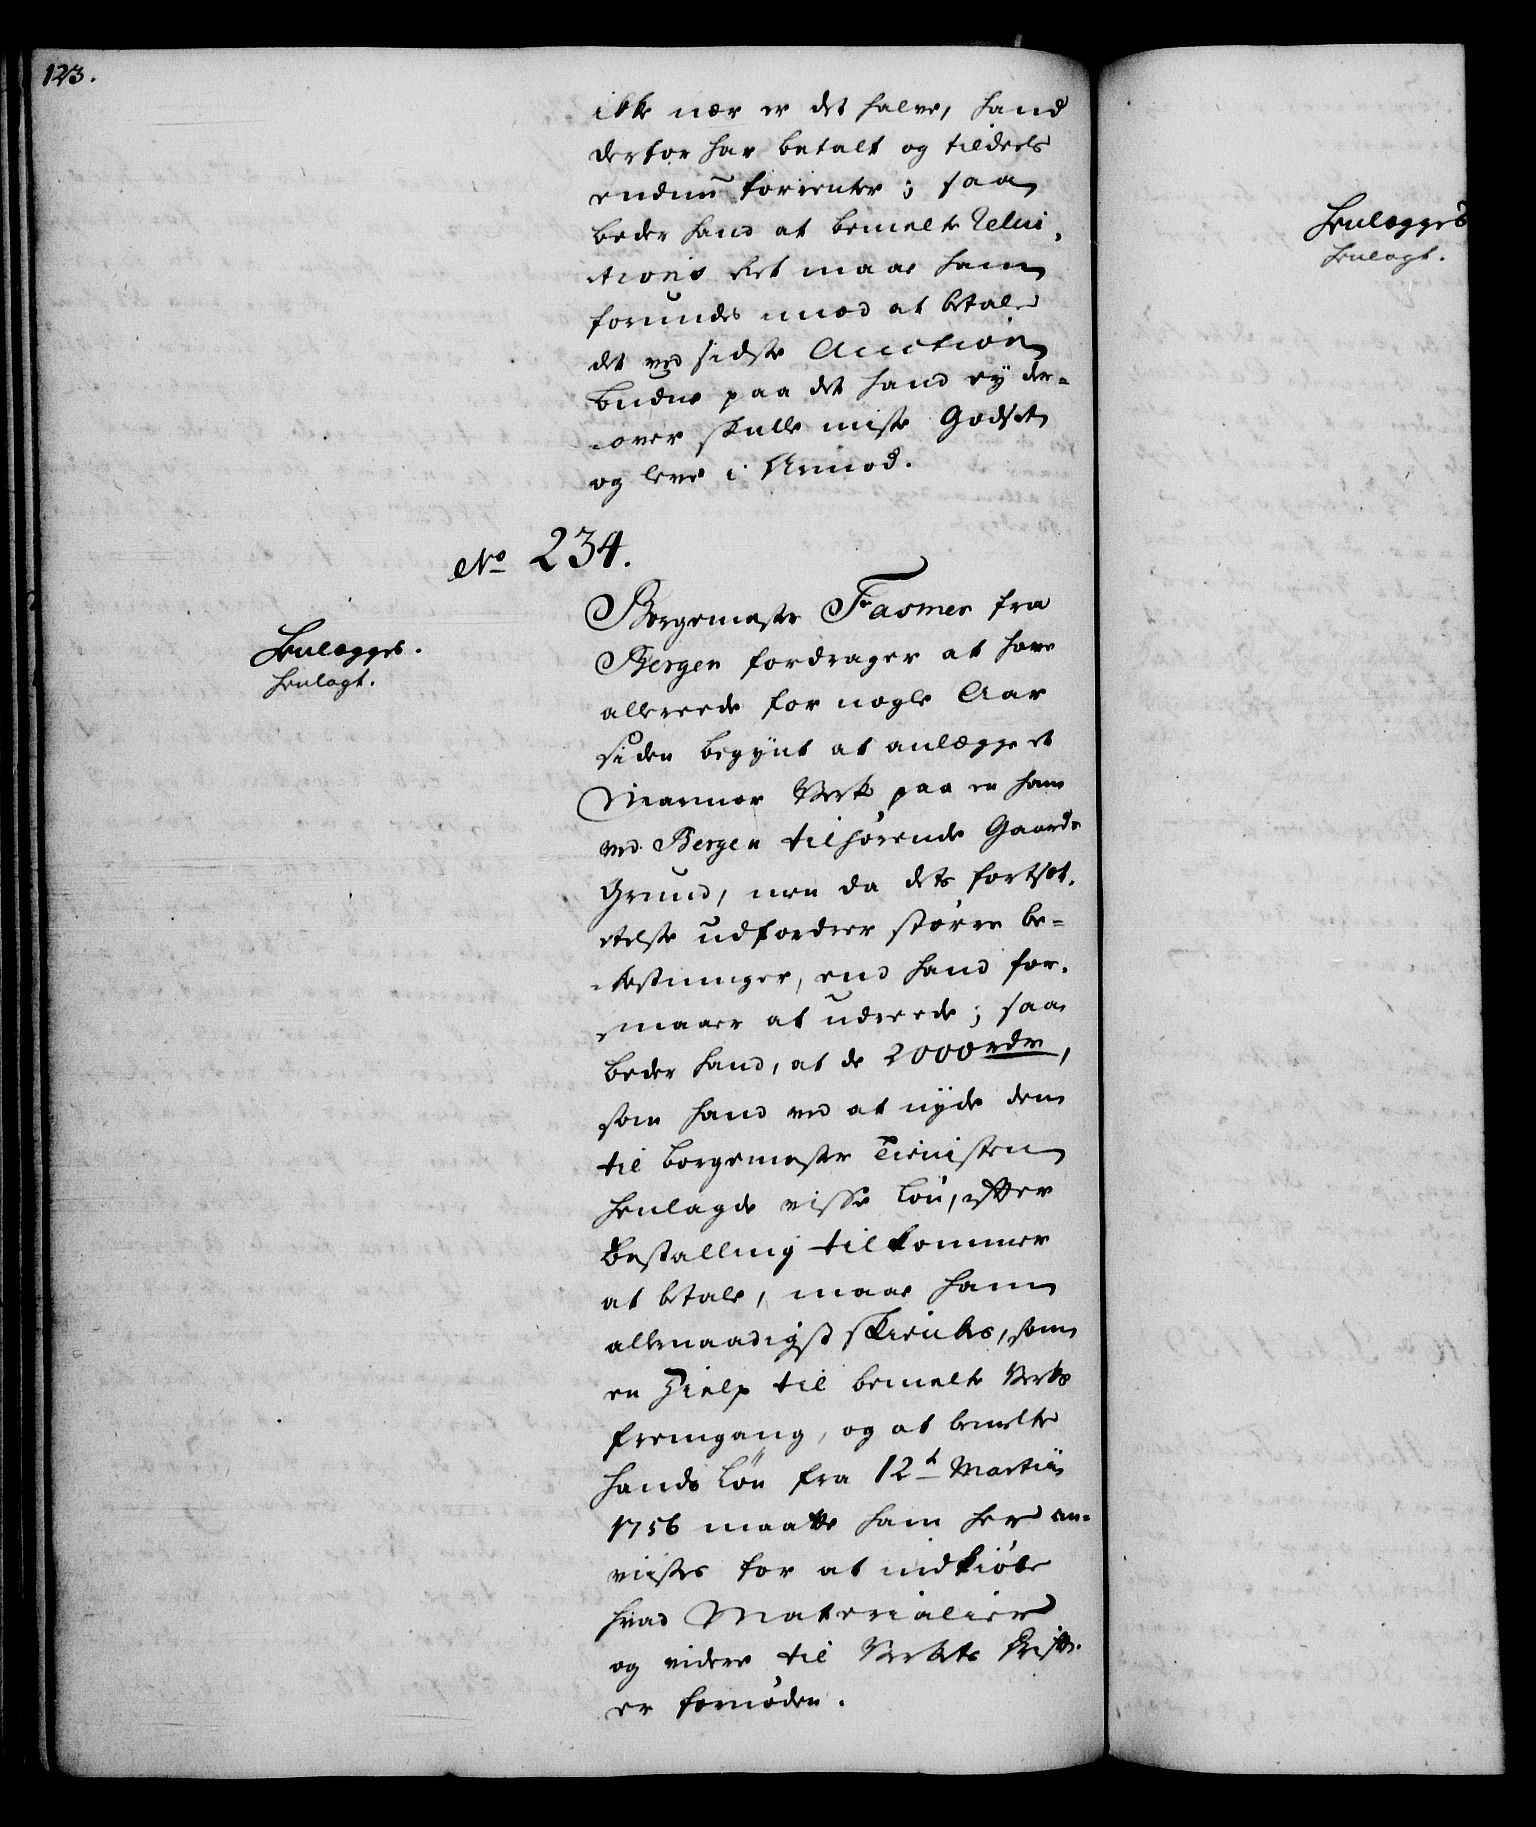 123.
ikke nær er det halve, hand
derfor har betalt og tildeels
endnu forrenter; saa
beder hand at bemelte Relui-
tions Ret maae ham
forundes imod at betale
det ved sidste Auction
budne paa det hand ey der-
-over skulle miste Godset
og leve i Armod.
No 234.
Borgemester Fasmer fra
Bergen fordrager at have
allereede for nogle Aar
siden begynt at anlægge et
Marmor Verk paa en ham
ved Bergen tilhørende Gaards
Grund, men da dets fortset-
telse udfordrer større be-
-kostninger, end hand for-
maaer at udreede; saa
beder hand, at de 2000 rdr,
som hand ved at nyde den
til borgemester Tienisten
henlagde visse Løn, efter
Bestalling tilkommer
at betale, maae ham
allernaadigst skienkes, som
en Hielp til bemelte Verks
fremgang, og at bemelte
hands Løn fra 12t Martii
1756 maatte ham her an-
viises for at indkiøbe
hvad Materialier
og videre til Verkets Drift
er fornøden.
Henlægges.
henlagt.
Henlægges
henlagt.